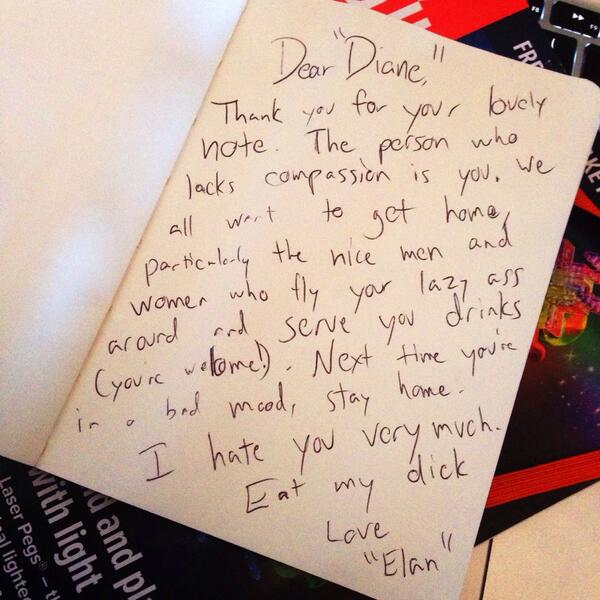 Dear "Diane,"
Thank you for your lovely
note. The person who
lacks compassion is you. We
all want to get home,
particularly the nice men and
women who fly your lazy ass
around and serve you drinks
(you're welcome!). Next time you're
in a bad mood, stay home.
I hate you very much.
Eat my dick
Love
"Elan"
with light
Laser Pegs®